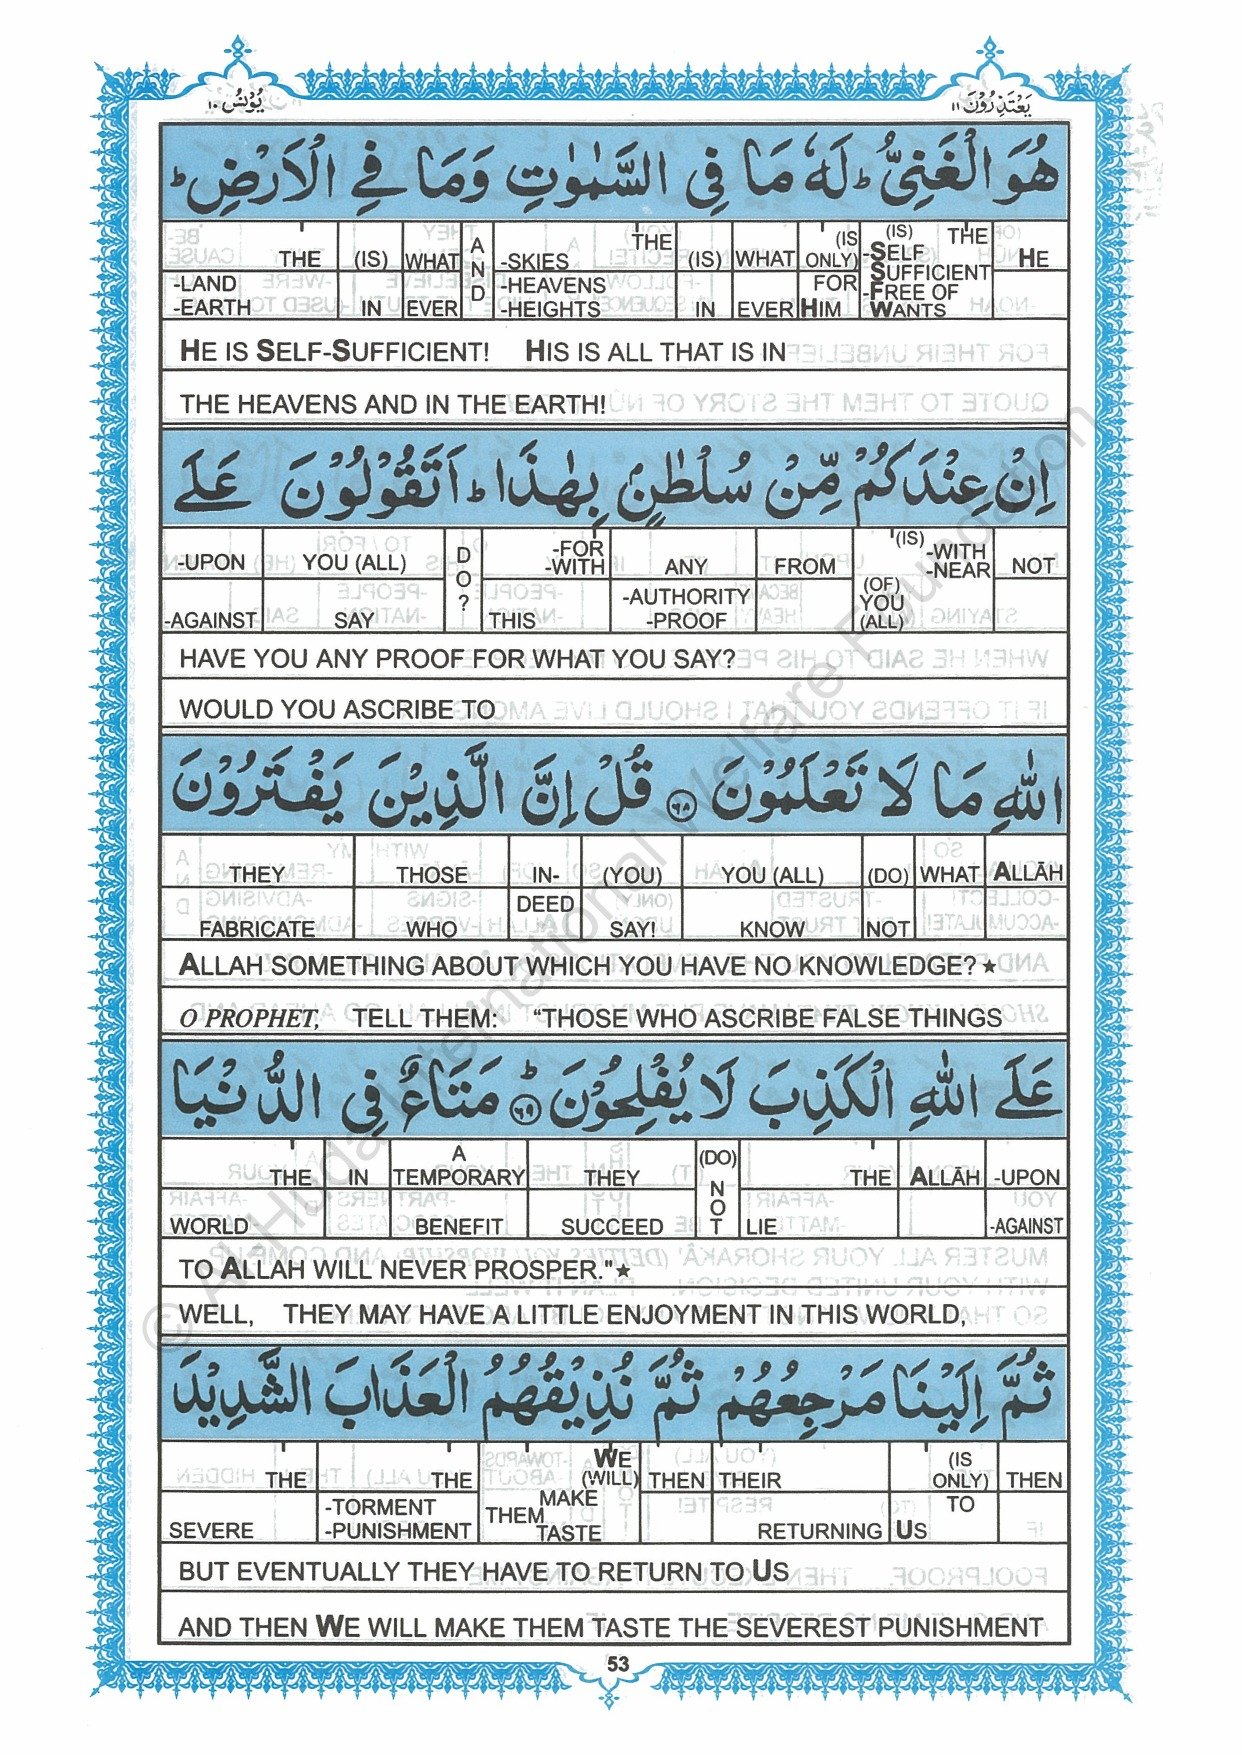 يَعْتَذِرُوْنَ ١١
يُوْنُسُ ١٠
هُوَ الْغَنِىُّ ؕ لَهٗ مَا فِى السَّمٰوٰتِ وَمَا فِى الْاَرْضِ ؕ
THE (IS) WHAT AND -SKIES THE (IS) WHAT (IS ONLY) (IS) -SELF SUFFICIENT THE HE
-LAND -EARTH IN EVER -HEAVENS -HEIGHTS IN EVER FOR HIM -FREE OF WANTS
HE IS SELF-SUFFICIENT! HIS IS ALL THAT IS IN
THE HEAVENS AND IN THE EARTH!
اِنْ عِنْدَكُمْ مِّنْ سُلْطٰنٍۭ بِهٰذَا ؕ اَتَقُوْلُوْنَ عَلَى
-UPON YOU (ALL) DO? -FOR -WITH ANY FROM (IS) -WITH -NEAR NOT
-AGAINST SAY THIS -AUTHORITY -PROOF (OF) YOU (ALL)
HAVE YOU ANY PROOF FOR WHAT YOU SAY?
WOULD YOU ASCRIBE TO
اللّٰهِ مَا لَا تَعْلَمُوْنَ ۝٦٨ قُلْ اِنَّ الَّذِيْنَ يَفْتَرُوْنَ
THEY THOSE IN- (YOU) YOU (ALL) (DO) WHAT ALLĀH
FABRICATE WHO DEED SAY! KNOW NOT
ALLAH SOMETHING ABOUT WHICH YOU HAVE NO KNOWLEDGE?★
O PROPHET, TELL THEM: “THOSE WHO ASCRIBE FALSE THINGS
عَلَى اللّٰهِ الْكَذِبَ لَا يُفْلِحُوْنَ ؕ ۝٦٩ مَتَاعٌ فِى الدُّنْيَا
THE IN A TEMPORARY THEY (DO) NOT THE ALLĀH -UPON
WORLD BENEFIT SUCCEED LIE -AGAINST
TO ALLAH WILL NEVER PROSPER."★
WELL, THEY MAY HAVE A LITTLE ENJOYMENT IN THIS WORLD,
ثُمَّ اِلَيْنَا مَرْجِعُهُمْ ثُمَّ نُذِيْقُهُمُ الْعَذَابَ الشَّدِيْدَ
THE THE WE (WILL) MAKE THEN THEIR (IS ONLY) THEN
SEVERE -TORMENT -PUNISHMENT THEM TASTE RETURNING TO US
BUT EVENTUALLY THEY HAVE TO RETURN TO US
AND THEN WE WILL MAKE THEM TASTE THE SEVEREST PUNISHMENT
53
© Al-Huda International Welfare Foundation